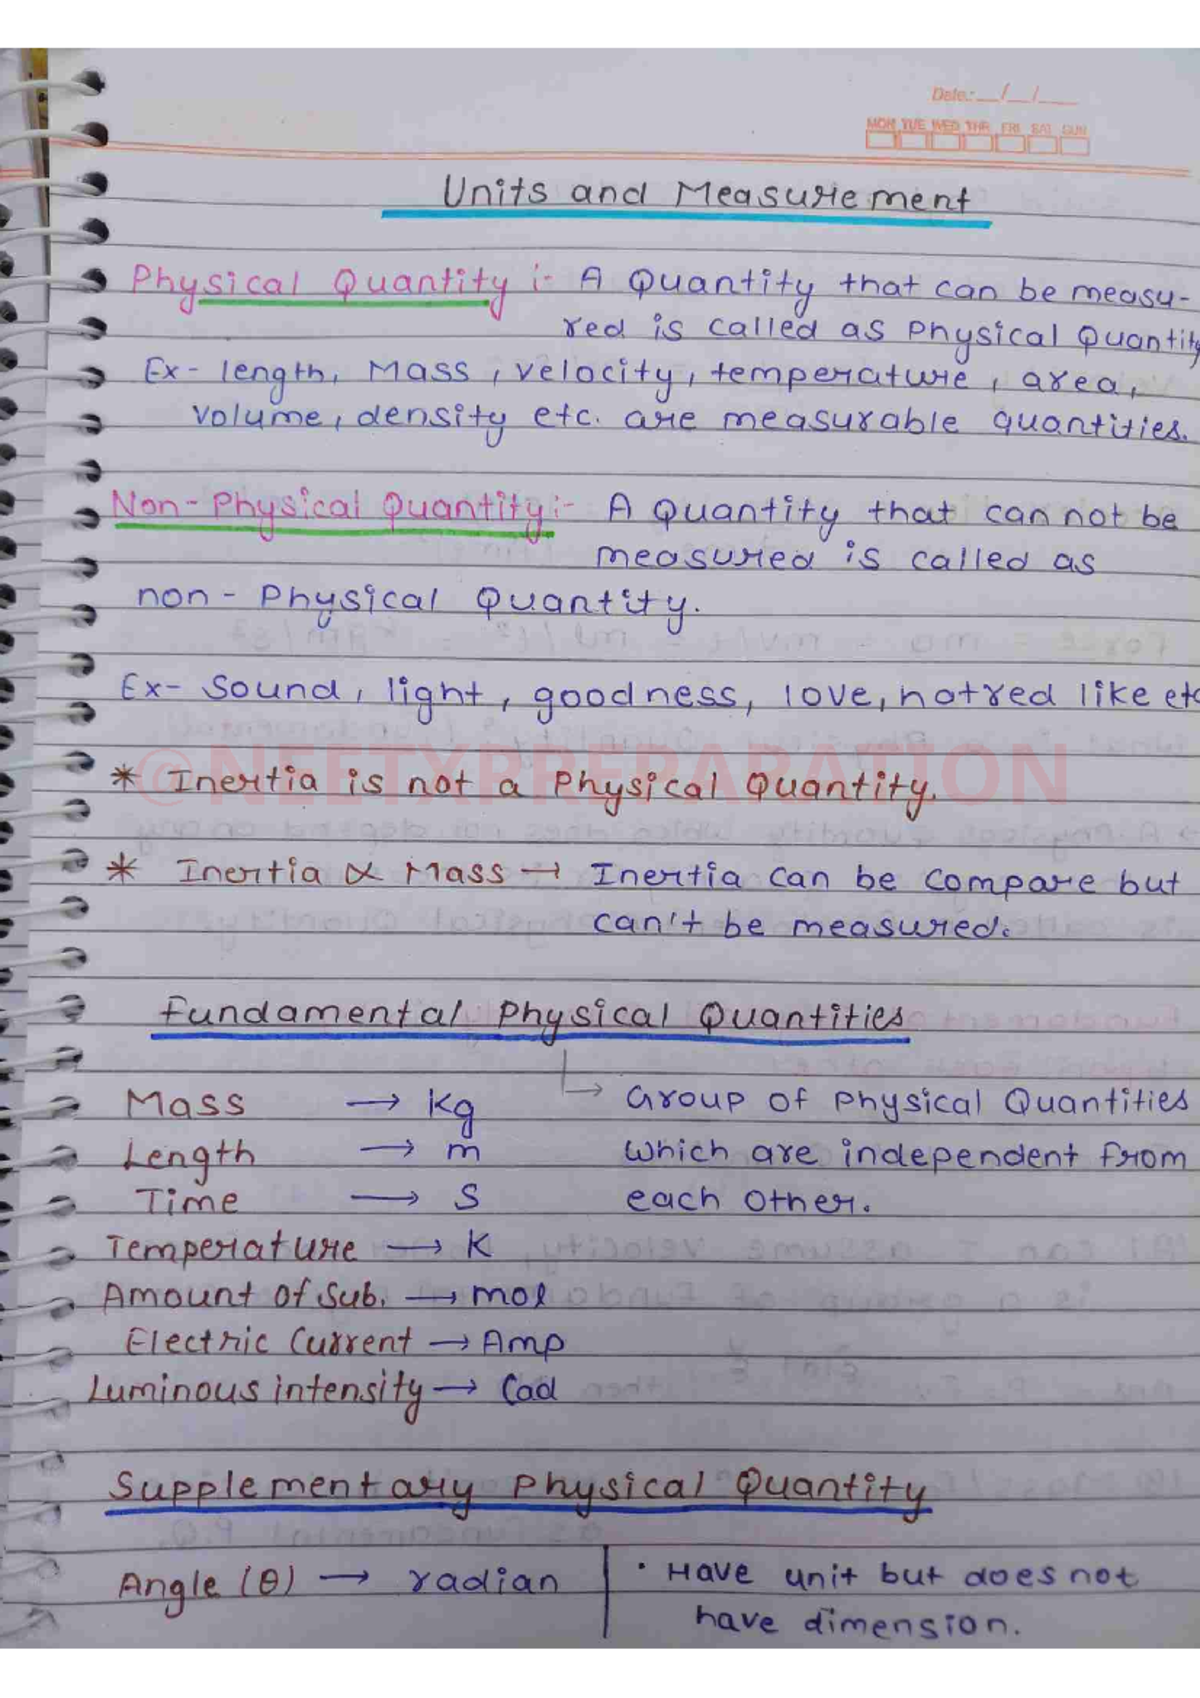 Date:__/__/____
MON TUE WED THR FRI SAT SUN
Units and Measurement
Physical Quantity :- A Quantity that can be measu-
red is called as Physical Quantity
Ex- length, Mass, velocity, temperature, area,
volume, density etc. are measurable quantities.
Non-Physical Quantity :- A Quantity that can not be
measured is called as
non-Physical Quantity.
Ex- Sound, light, goodness, love, hatred like etc
@NEETXPREPARATION
* Inertia is not a Physical Quantity.
* Inertia ∝ Mass → Inertia can be compare but
can't be measured.
Fundamental Physical Quantities
Mass → kg
↳ Group of Physical Quantities
Length → m
which are independent from
Time → s
each other.
Temperature → K
Amount of Sub. → mol
Electric Current → Amp
Luminous intensity → Cad
Supplementary Physical Quantity
Angle (θ) → radian
• Have unit but does not
have dimension.